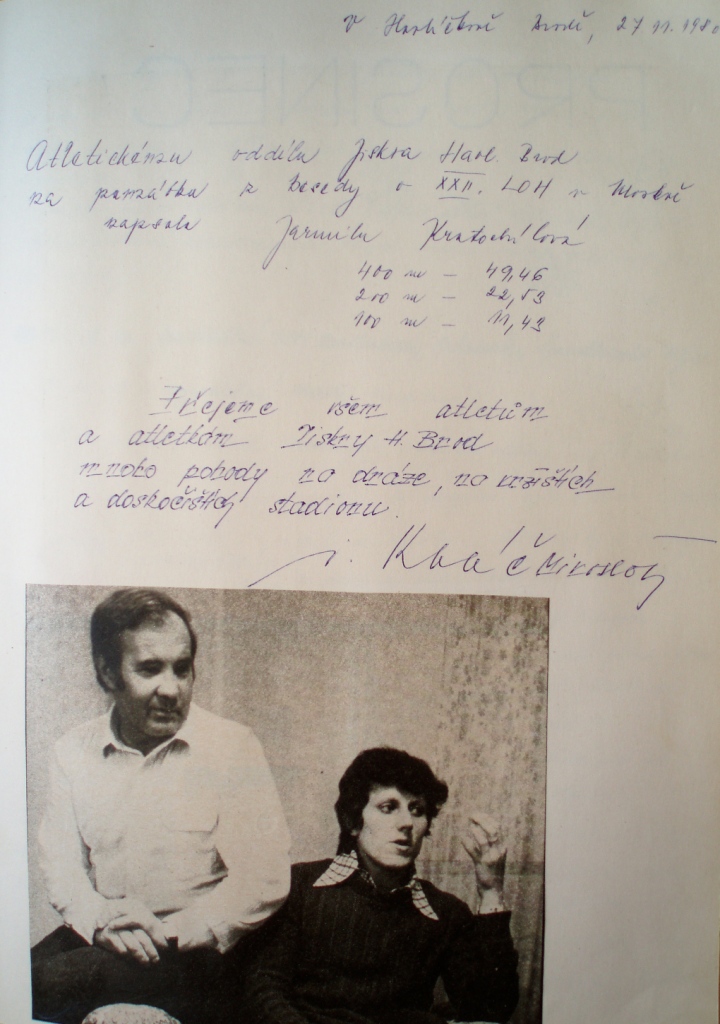 V Havlíčkově Brodě, 27 11. 1980
PROSINEC
Atletickému oddílu Jiskra Havl. Brod
na památku z besedy o XXII. LOH v Moskvě
zapsala Jarmila Kratochvílová
400 m – 49,46
200 m – 22,53
100 m – 11,43
Přejeme všem atletům
a atletkám Jiskry H. Brod
mnoho pohody na dráze, na vržištích
a doskočištích stadionu.
Kváč Miroslav